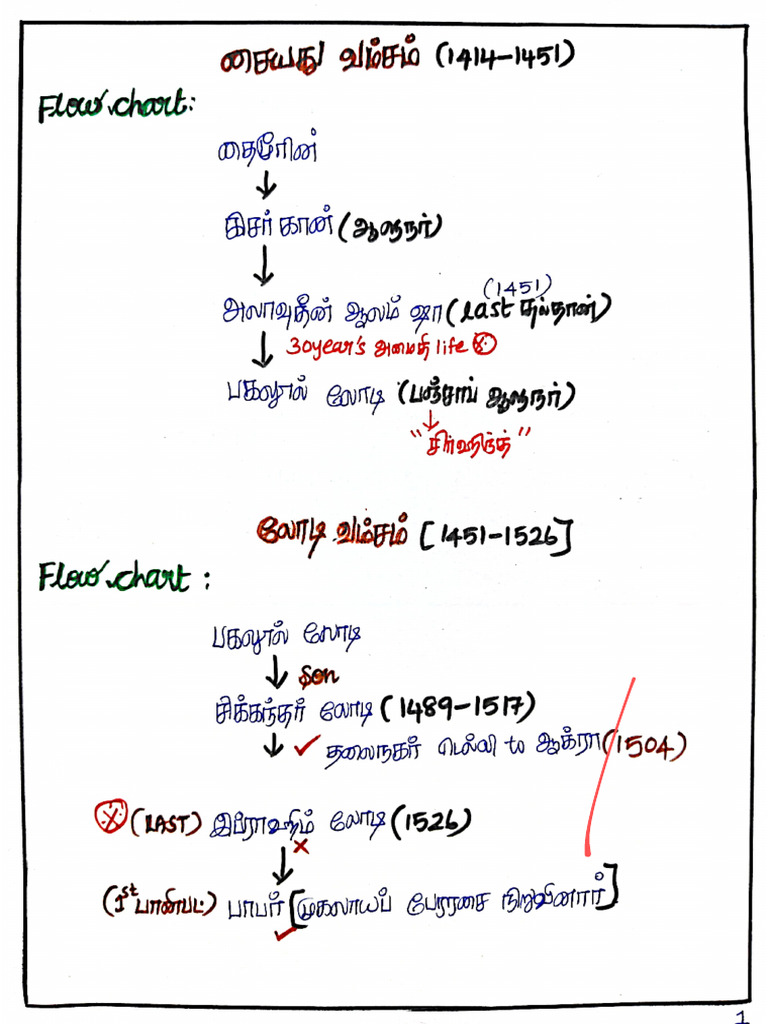 சையது வம்சம் (1414-1451)
Flow chart:
தைமூரின்
↓
கிசர் கான் (ஆளுநர்)
↓
(1451)
அலாவுதீன் ஆலம் ஷா (last சுல்தான்)
↓ 30year's அமைதி life
பகலூல் லோடி (பஞ்சாப் ஆளுநர்)
↓
"சிர்ஹிந்த்"
லோடி வம்சம் [1451-1526]
Flow chart :
பகலூல் லோடி
↓ Son
சிக்கந்தர் லோடி (1489-1517)
↓ ✓ தலைநகர் டெல்லி to ஆக்ரா (1504)
(LAST) இப்ராஹிம் லோடி (1526)
↓ x
(1st பானிபட்) பாபர் [முகலாயப் பேரரசை நிறுவினார்]
✓
1